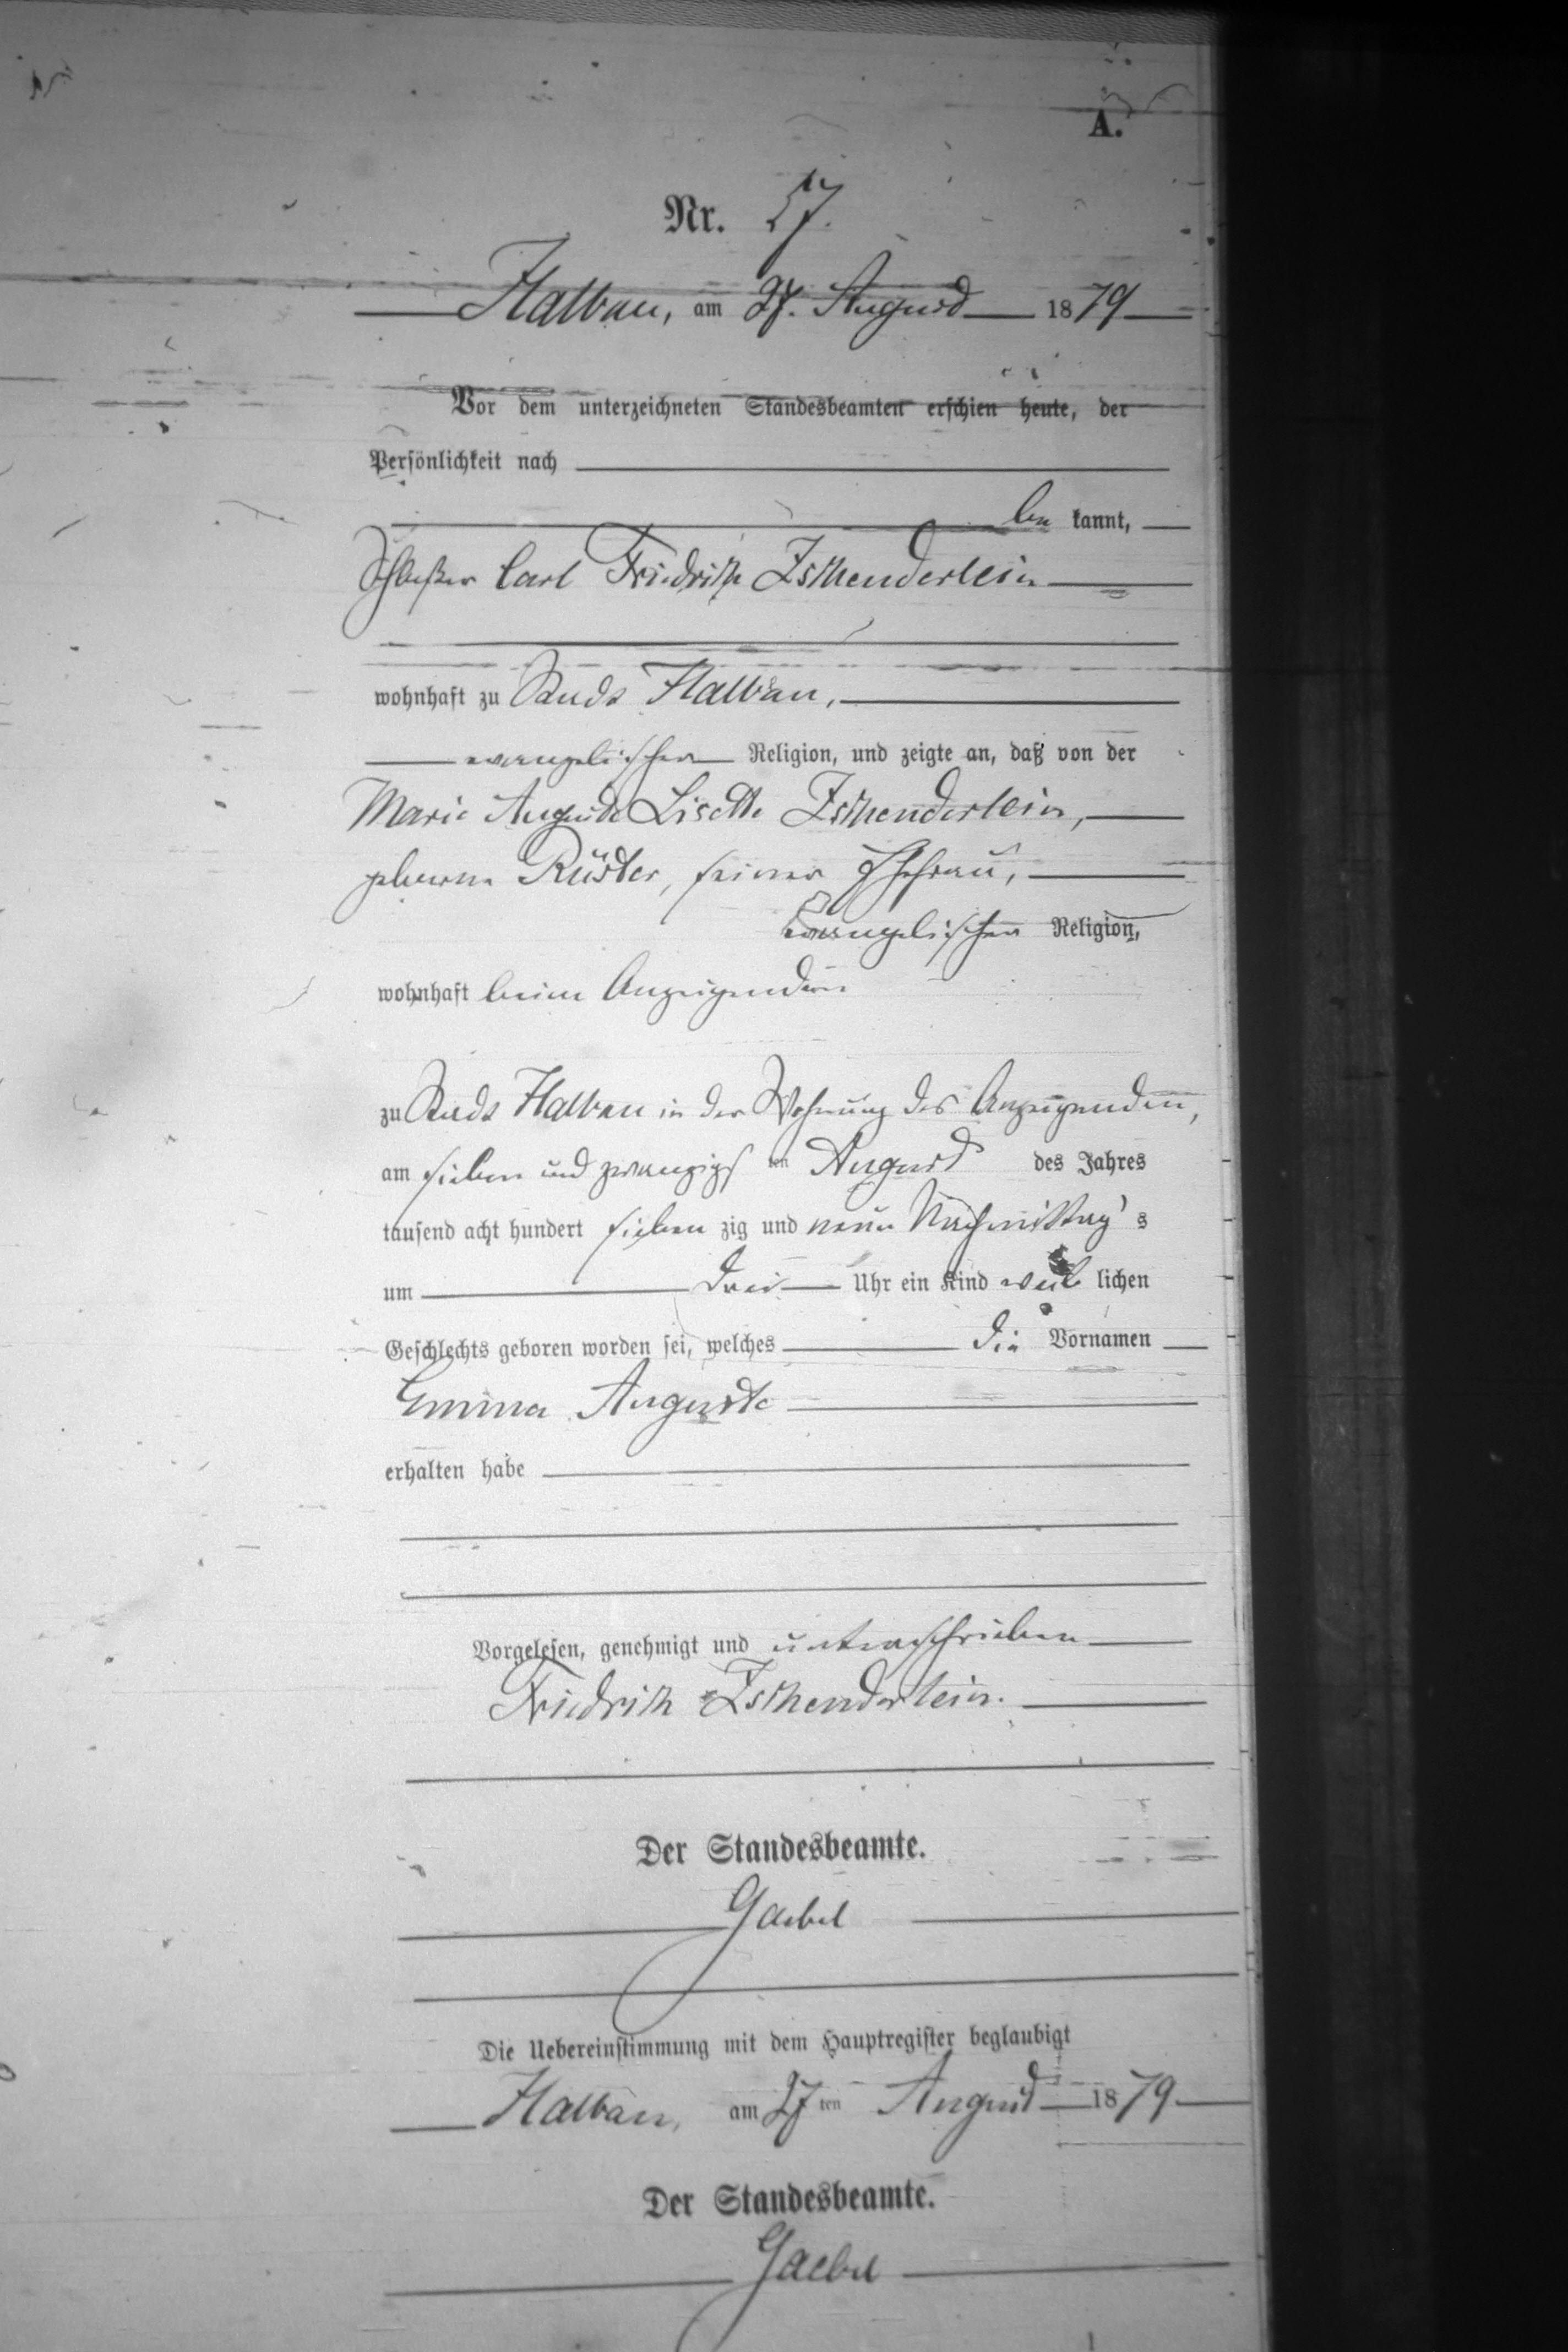 A.
Nr. 57.
Halbau, am 27. August 1879
Vor dem unterzeichneten Standesbeamten erschien heute, der
Persönlichkeit nach
be kannt,
Carl Friedrich Zschenderlein
wohnhaft zu Stadt Halbau,
evangelischer Religion, und zeigte an, daß von der
Marie Auguste Lisette Zschenderlein,
geborne Rüster, seiner Ehefrau,
evangelischer Religion,
wohnhaft beim Anzeigenden
zu Stadt Halbau in der Wohnung des Anzeigenden,
am sieben und zwanzigs ten August des Jahres
tausend acht hundert sieben zig und neun Nachmittag s
um drei Uhr ein Kind weib lichen
Geschlechts geboren worden sei, welches die Vornamen
Emma Auguste
erhalten habe
Vorgelesen, genehmigt und unterschrieben
Friedrich Zschenderlein.
Der Standesbeamte.
Gaebel
Die Uebereinstimmung mit dem Hauptregister beglaubigt
Halbau, am 27 ten August 1879
Der Standesbeamte.
Gaebel